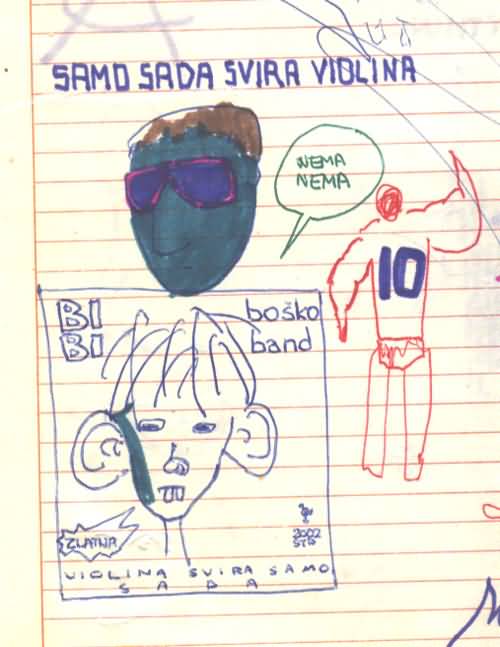 SAMO SADA SVIRA VIOLINA
NEMA
NEMA
10
BI boško
BI band
ZLATNA
2002
VIOLINA SVIRA SAMO
SADA